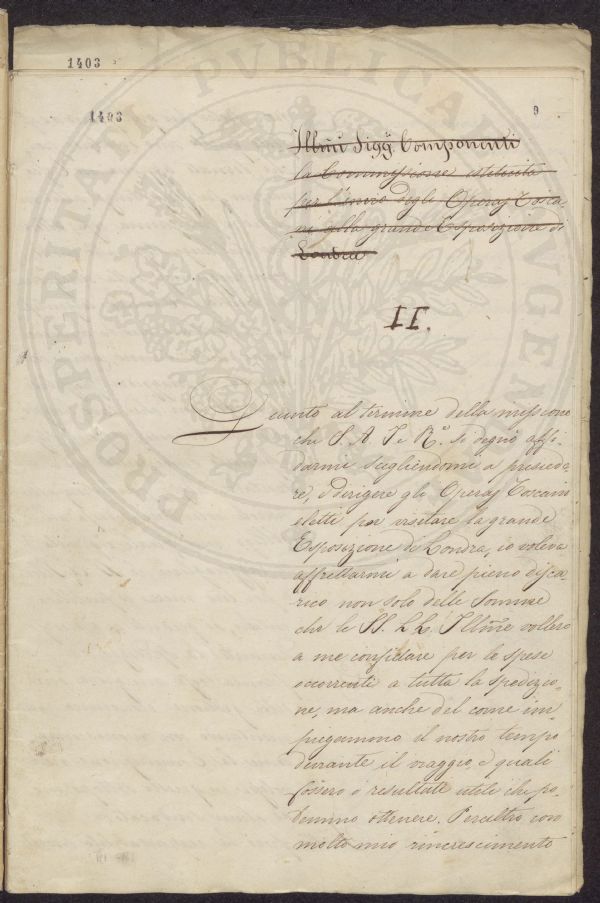 1403
1403
9
Illmi Sigg. Componenti
la Commissione istituita
per l'invio degli Operaj Tosca-
ni alla grande Esposizione di
Londra
II.
Giunto al termine della missione
che S. A. I. e R.e si degnò affi-
darmi scegliendomi a presiede-
re, e dirigere gli Operaj Toscani
eletti per visitare la grande
Esposizione di Londra, io voleva
affrettarmi a dare pieno disca-
rico non solo delle somme
che le SS. LL. Illme vollero
a me confidare per le spese
occorrenti a tutta la spedizio-
ne, ma anche del come im-
piegammo il nostro tempo
durante il viaggio, e quali
fossero i resultati utili che po-
temmo ottenere. Peraltro con
molto mio rincrescimento
PROSPERITATI PUBLICAE AUGENDAE